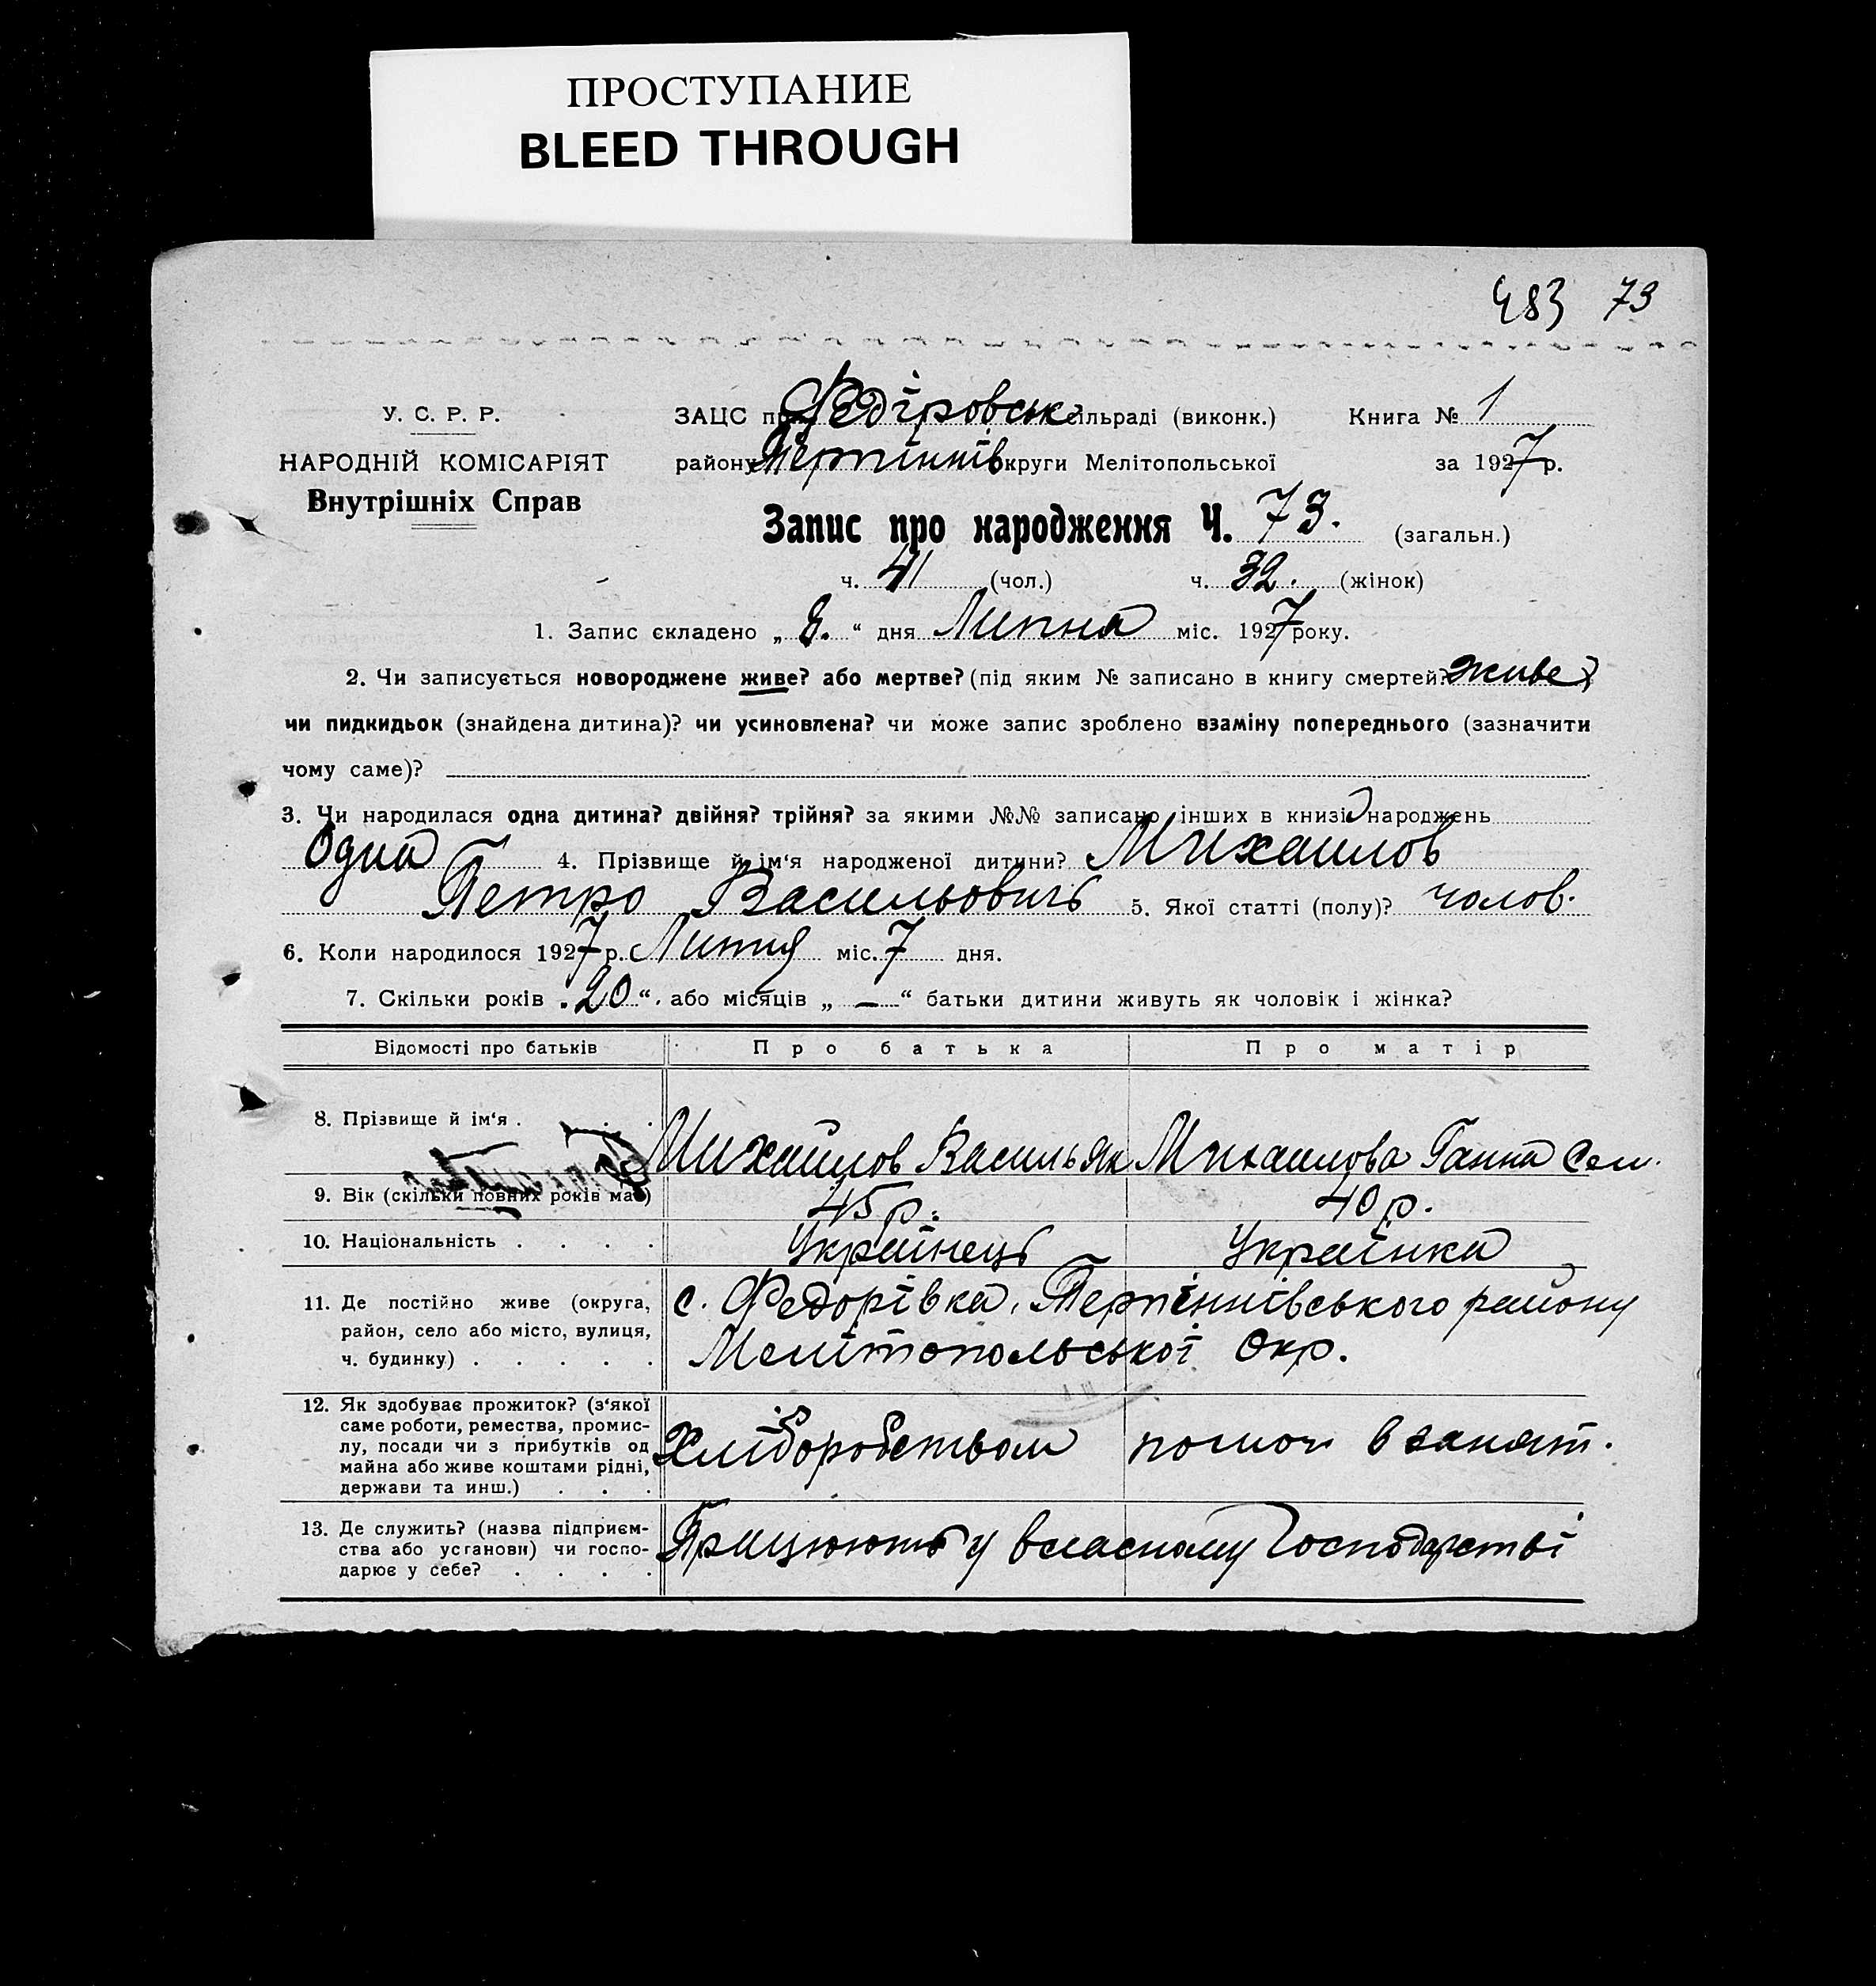 ПРОСТУПАНИЕ
BLEED THROUGH
483 73
У. С. Р. Р.
НАРОДНІЙ КОМІСАРІЯТ
Внутрішніх Справ
ЗАЦС при Федіровськ сільраді (виконк.) Книга № 1
району Терпіннів округи Мелітопольської за 1927 р.
Запис про народження Ч. 73. (загальн.)
ч. 41 (чол.) ч. 32. (жінок)
1. Запис складено „ 8. “ дня Липня міс. 1927 року.
2. Чи записується новороджене живе? або мертве? (під яким № записано в книгу смертей? живе)
чи пидкидьок (знайдена дитина)? чи усиновлена? чи може запис зроблено взаміну попереднього (зазначити
чому саме)?
3. Чи народилася одна дитина? двійня? трійня? за якими №№ записано інших в книзі народжень
Одна 4. Прізвище й ім‘я народженої дитини? Михаилов
Петро Васильович 5. Якої статті (полу)? чолов.
6. Коли народилося 1927 р. Липня міс. 7 дня.
7. Скільки років „20“. або місяців „ — “ батьки дитини живуть як чоловік і жінка?
Відомості про батьків Про батька Про матір
8. Прізвище й ім‘я . . . . Михаилов Василь Як Михаилова Ганна Сем.
9. Вік (скільки повних років має) 45 р. 40 р.
10. Національність . . . . Українець Українка
11. Де постійно живе (округа,
район, село або місто, вулиця,
ч. будинку) . . . . .
с. Федорівка, Терпіннівського району
Мелітопольської Окр.
12. Як здобуває прожиток? (з‘якої
саме роботи, ремества, промис-
лу, посади чи з прибутків од
майна або живе коштами рідні,
держави та инш.) . . .
Хліборобством помоч в занят.
13. Де служить? (назва підприєм-
ства або установи) чи госпо-
дарює у себе? . . . .
Працюють у власному Господарстві